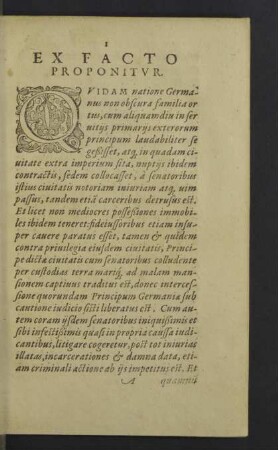 1
EX FACTO
PROPONITVR.
QVIDAM natione Germa-
nus non obscura familia or
tus, cum aliquamdiu in ser
uitijs primarijs exterorum
principum laudabiliter se
gessisset, atq; in quadam ci-
uitate extra imperium sita, nuptijs ibidem
contractis, sedem collocasset, à senatoribus
istius ciuitatis notoriam iniuriam atq; uim
passus, tandem etiã carceribus detrusus est.
Et licet non mediocres possessiones immobi-
les ibidem teneret: fideiussoribus etiam insu-
per cauere paratus esset, tamen & quidem
contra priuilegia eiusdem ciuitatis, Princi-
pe dictæ ciuitatis cum senatoribus colludente
per custodias terra mariq; ad malam man-
sionem captiuus traditus est, donec interces-
sione quorundam Principum Germaniæ sub
cautione iudicio sisti liberatus est. Cum au-
tem coram ijsdem senatoribus iniquissimis et
sibi infestissimis quasi in propria caussa iudi-
cantibus, litigare cogeretur, post tot iniurias
illatas, incarcerationes & damna data, eti-
am criminali actione ab ijs impetitus est. Et
A quamui